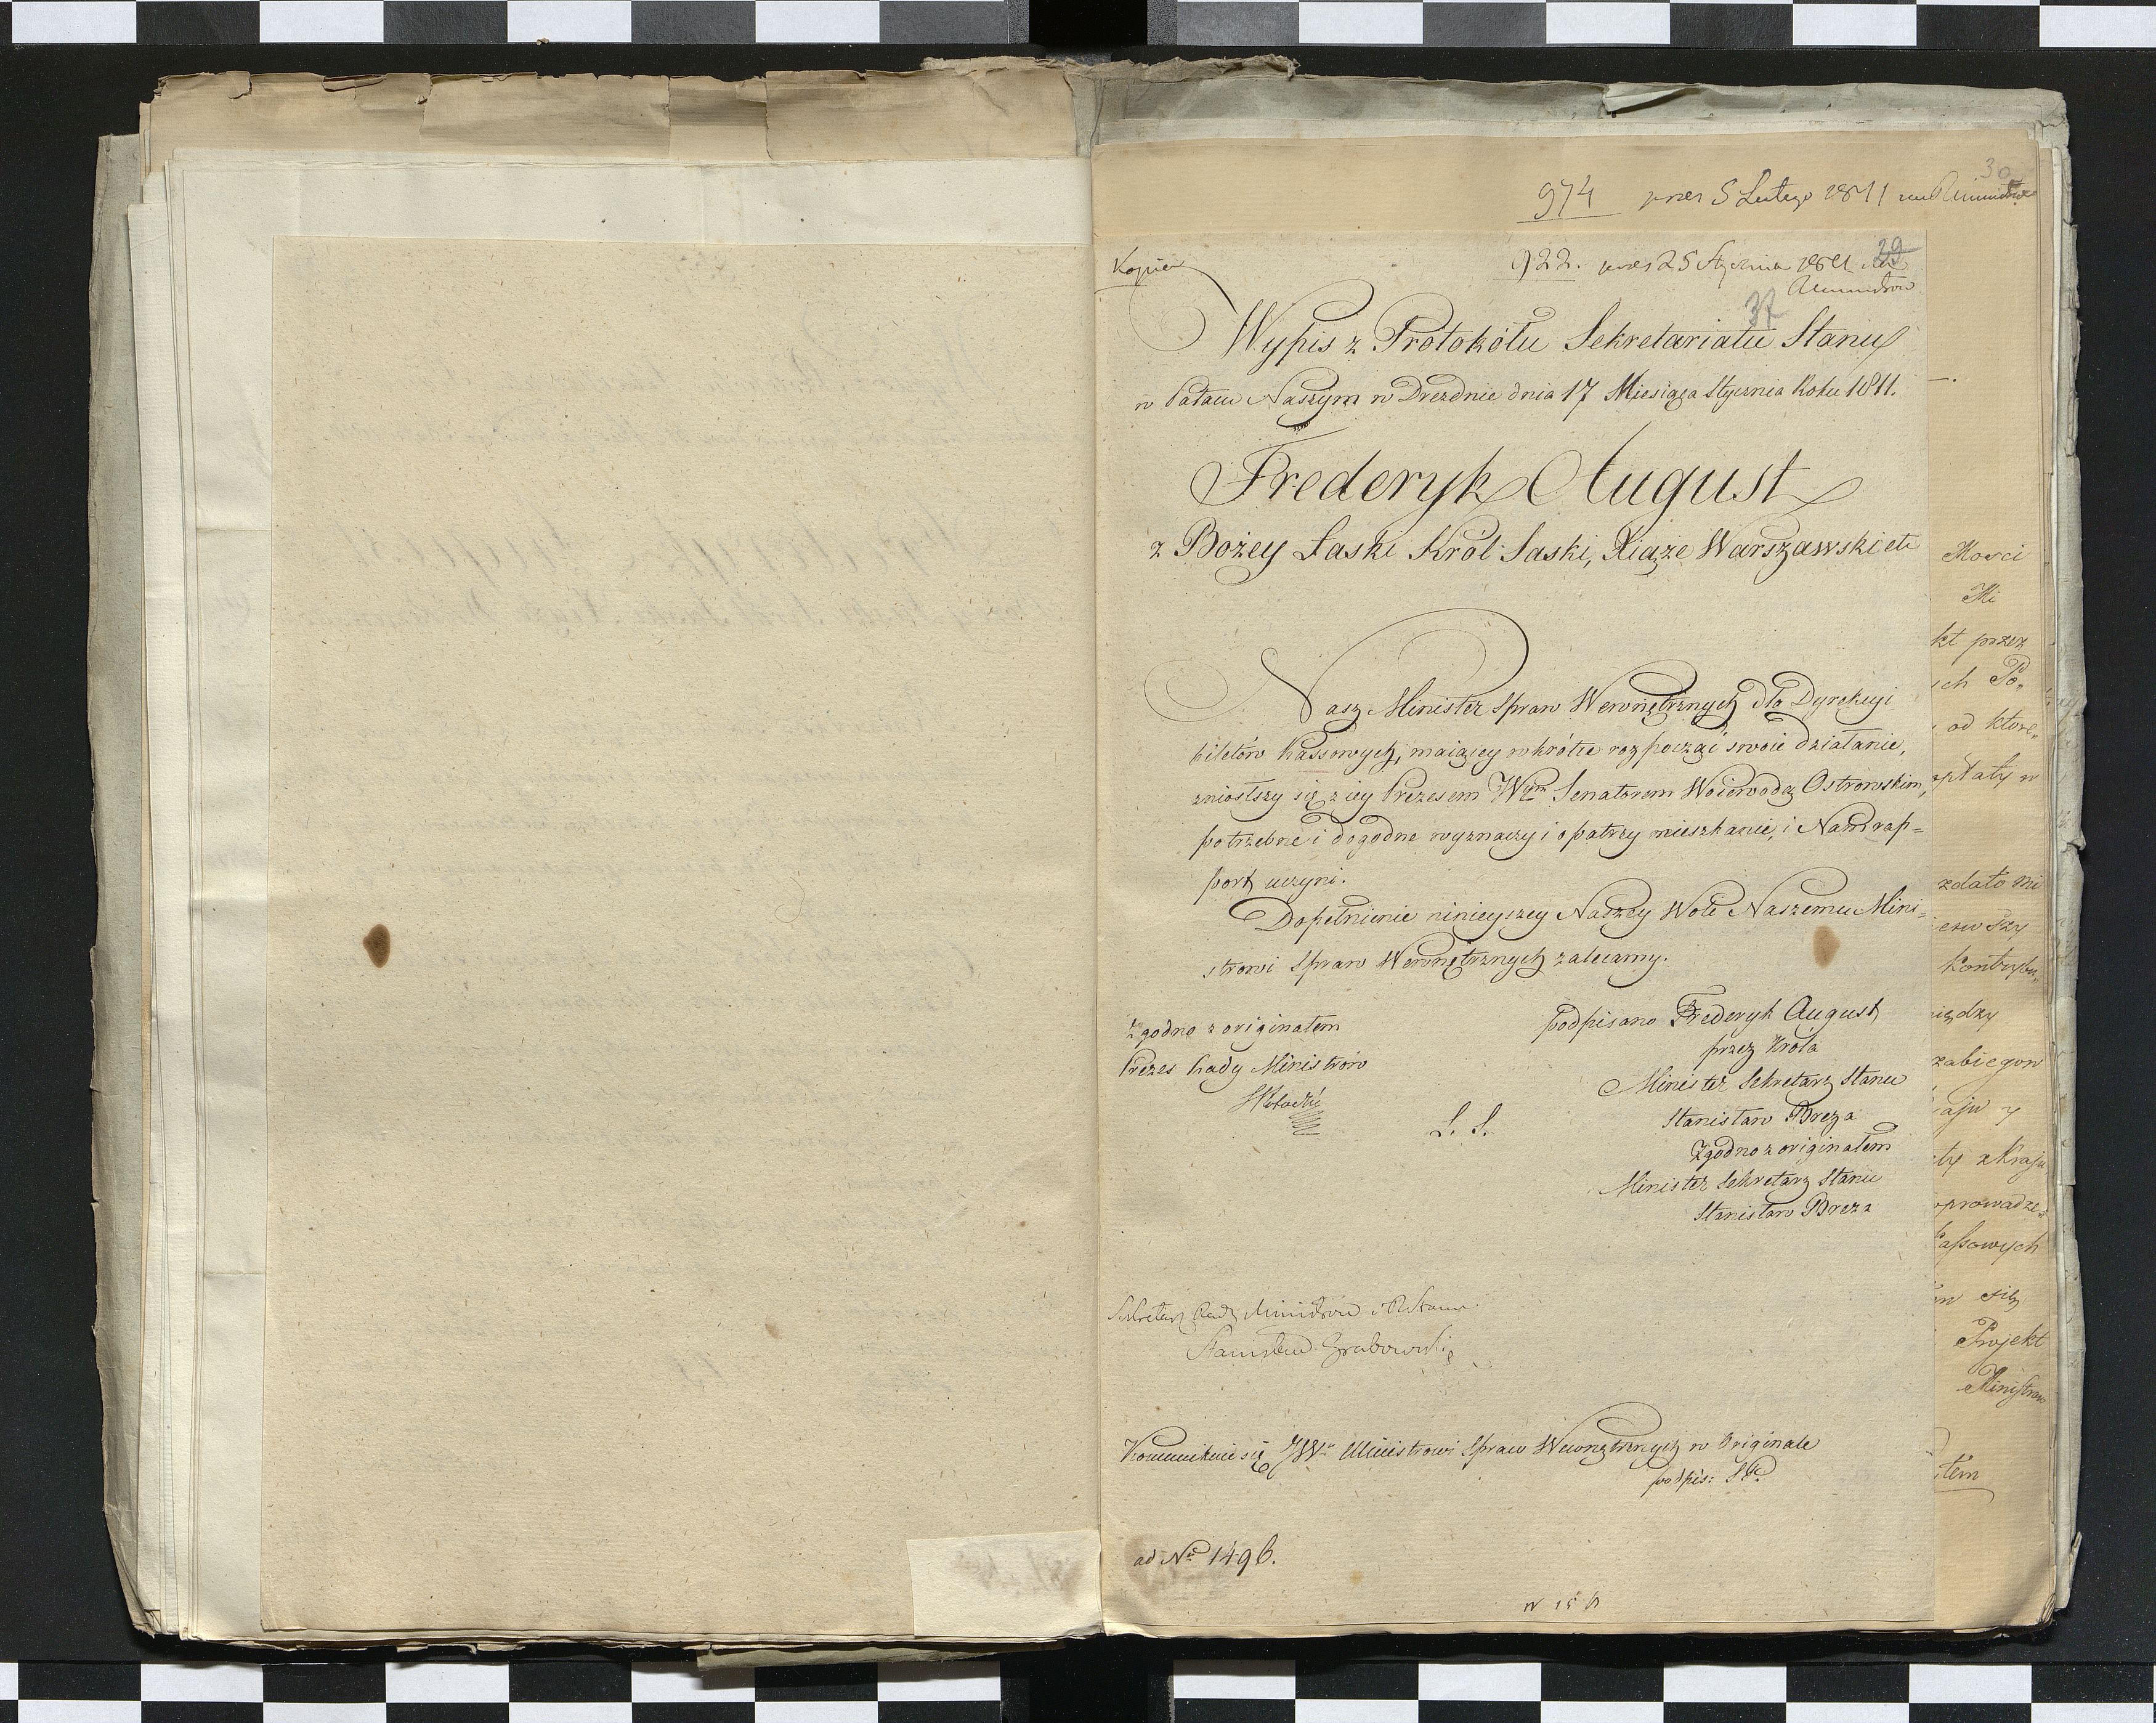 30
974 pres 5 Lutego 1811
Kopia
922. pres 25 Stycznia 1811 29
37
Wypis z Protokółu Sekretariatu Stanu
w Pałacu Naszym w Dreznie dnia 17 Miesiąca Stycznia Roku 1811.
Frederyk August
z Bożey Łaski Król Saski, Xiąże Warszawski etc
Nasz Minister Spraw Wewnętrznych dla Dyrekcyi
biletów Kassowych, maiącey wkrótce rozpocząć swoie działanie,
zniosłszy się z iey Prezesem Wym Senatorem Woiewodą Ostrowskim,
potrzebne i dogodne wyznaczy i opatrzy mieszkanie, i Nam rap=
port uczyni.
Dopełnienie ninieyszey Naszey Woli Naszemu Mini=
strowi Spraw Wewnętrznych zalecamy.
Zgodno z originałem
Prezes Rady Ministrów
podpisano Frederyk August
przez Króla
Minister Sekretarz Stanu
L. S.
Stanisław Breza
Zgodno z originałem
Minister Sekretarz Stanu
Stanisław Breza
Sekretarz Rady Ministrow i R Stanu
Stanisław Grabowski
Kommunikuie się JW Ministrowi Spraw Wewnętrznych w Originale
podpis:
ad No 1496.
Mości
Mi
kt przez
ich Po„
od które„
opłaty w
zdało mi
ierwszy
Kontrybu„
iędzy
zabiegow
aju y
ty z Kraju
prowadze„
Kassowych
Projekt
Ministrow